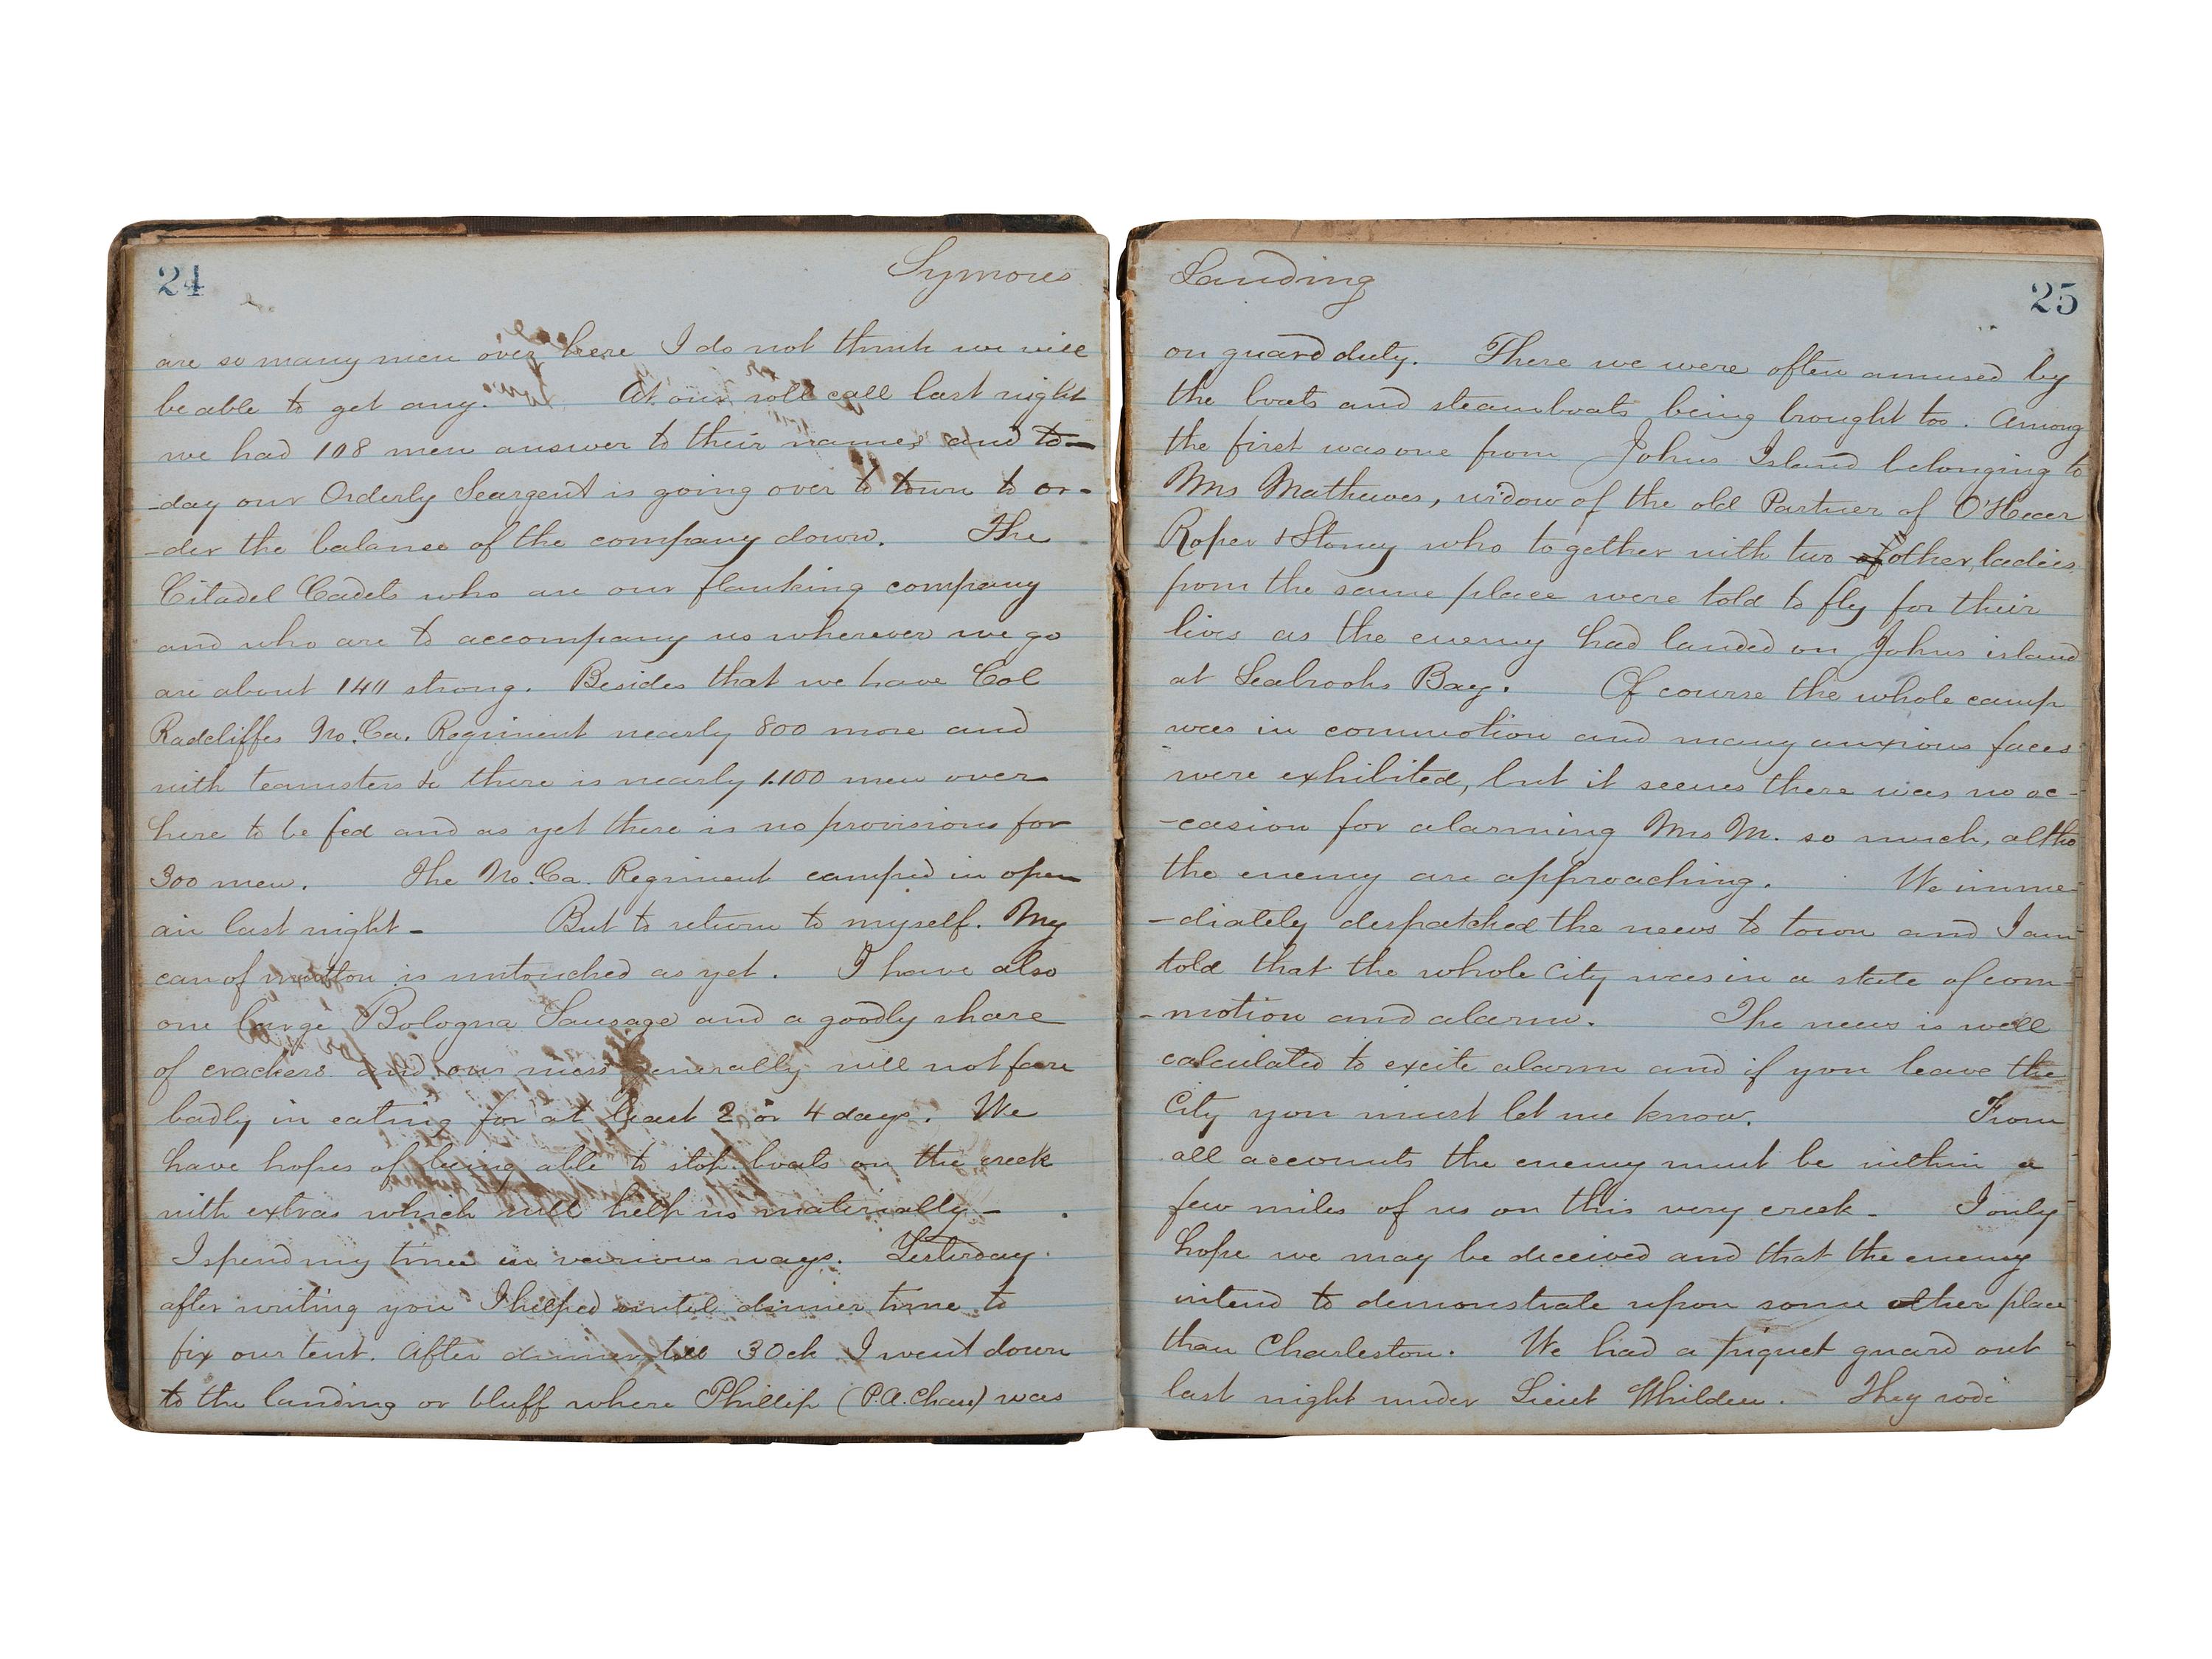 24
Symores
are so many men over here I do not think we will
be able to get any. At our roll call last night
we had 108 men answer to their names and to-
-day our Orderly Seargent is going over to town to or-
-der the balance of the company down. The
Citadel Cadets who are our flanking company
and who are to accompany us wherever we go
are about 140 strong. Besides that we have Col
Radcliffes No. Ca. Regiment nearly 800 more and
with teamsters &c there is nearly 1.100 men over
here to be fed and as yet there is no provisions for
300 men. The No. Ca. Regiment camped in open
air last night - But to return to myself. My
can of mutton is untouched as yet. I have also
one large Bologna Sausage and a goodly share
of crackers and our mess generally will not fare
badly in eating for at least 2 or 4 days. We
have hopes of being able to stop boats on the creek
with extras which will help us materially -
I spend my time in various ways. Yesterday
after writing you I helped until dinner time to
fix our tent. After dinner till 3 Ock I went down
to the landing or bluff where Phillip (P.A. Chau) was
Landing
25
on guard duty. There we were often amused by
the boats and steamboats being brought too. Among
the first was one from Johns Island belonging to
Mrs Mathewes, widow of the old Partner of O'Hear
Roper & Stoney who together with two of other ladies
from the same place were told to fly for their
lives as the enemy had landed on Johns island
at Seabrooks Bay. Of course the whole camp
was in commotion and many anxious faces
were exhibited, but it seems there was no oc-
-casion for alarming Mrs M. so much, altho
the enemy are approaching. We imme-
-diately despatched the news to town and I am
told that the whole City was in a state of com-
-motion and alarm. The news is well
calculated to excite alarm and if you leave the
City you must let me know. From
all accounts the enemy must be within a
few miles of us on this very creek - I only
hope we may be deceived and that the enemy
intend to demonstrate upon some other place
than Charleston. We had a piquet guard out
last night under Lieut Whilden. They rode